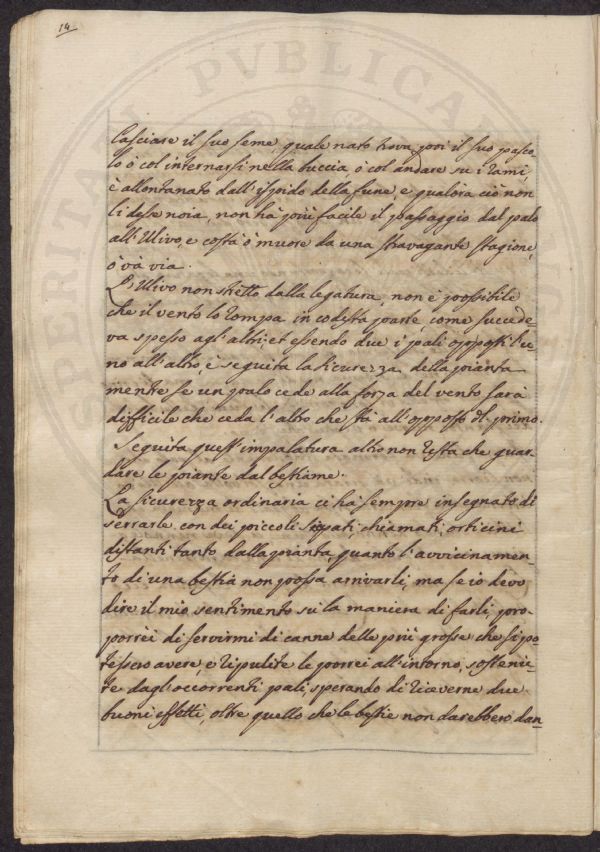 14
lasciare il suo seme, quale nato trova poi il suo pasco-
lo ò col internarsi nella buccia, ò col andare su i rami,
è allontanato dall' ispido della fune, e qualora ciò non
li desse noia, non hà più facile il passaggio dal palo
all' Ulivo, e costà ò muore da una stravagante stagione,
ò và via.
L' Ulivo non stretto dalla legatura, non è possibile
che il vento lo rompa in codesta parte, come succede-
va spesso agl' altri: et essendo due i pali opposti l' u-
no all' altro, è seguita la sicurezza della pianta
mentre se un palo cede alla forza del vento sarà
difficile che ceda l' altro che stà all' opposto dl. primo.
Seguita quest' impalatura altro non resta che guar-
dare le piante dal bestiame.
La sicurezza ordinaria ci hà sempre insegnato di
serrarle con dei piccoli siepati, chiamati, orticini
distanti tanto dalla pianta, quanto l' avvicinamen-
to di una bestia non possa arrivarli; ma se io devo
dire il mio sentimento su la maniera di farli, pro-
porrei di servirmi di canne delle più grosse che si po-
tessero avere, e ripulite le porrei all' intorno, sosteniu-
te dagl' occorrenti pali, sperando di riceverne due
buoni effetti, oltre quello che le bestie non darebbero dan-
PVBLICA